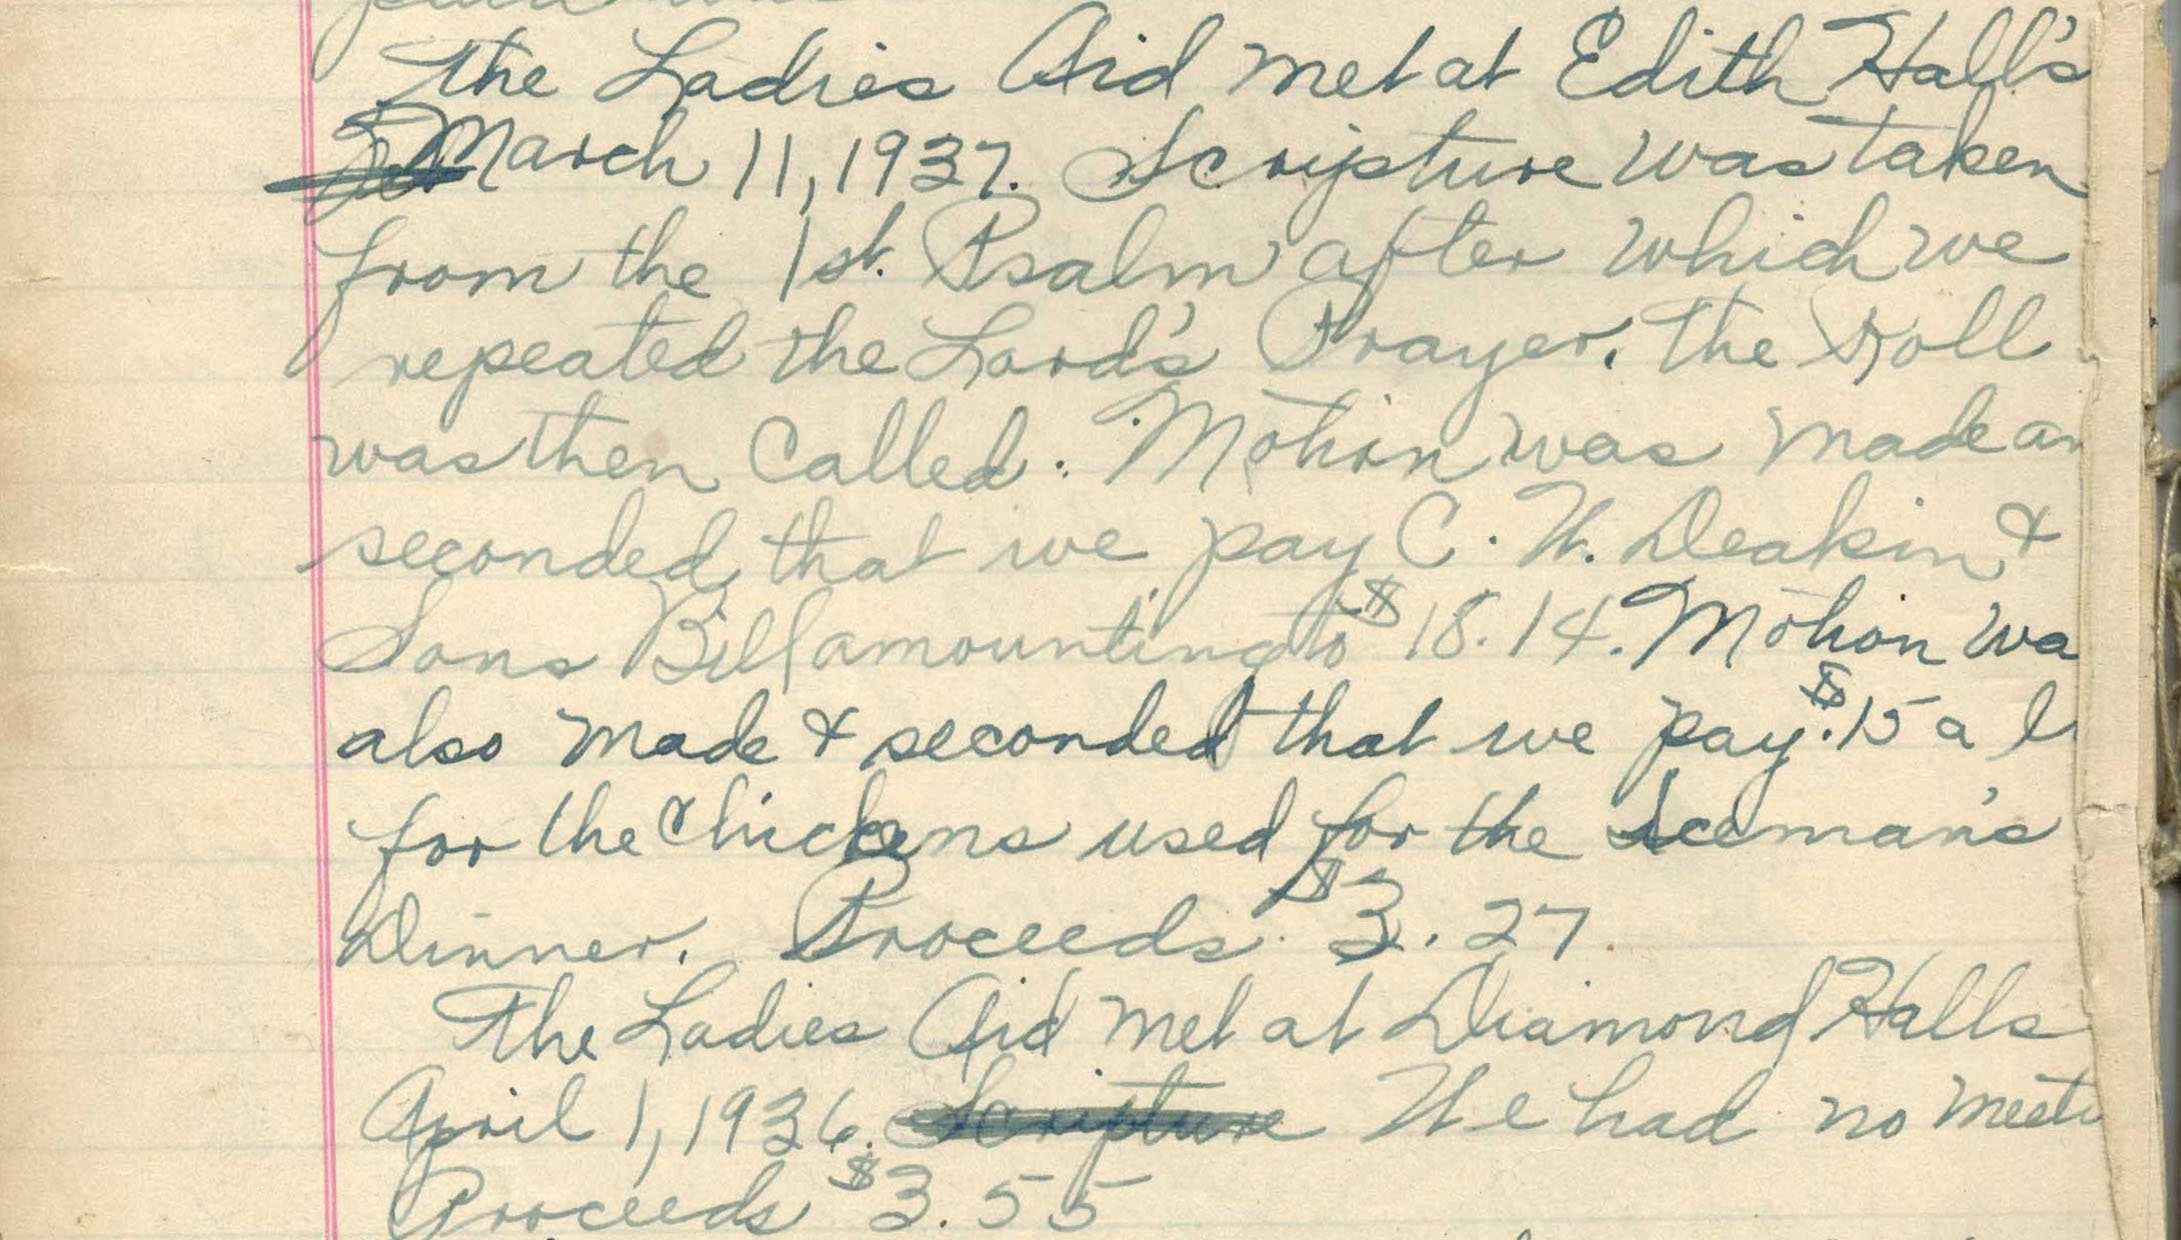 The Ladies Aid met at Edith Hall's
March 11, 1937. Scripture was taken
from the 1st. Psalm after which we
repeated the Lord's Prayer. The Roll
was then called. Motion was made an
seconded that we pay C. W. Deakin &
Sons Bill amounting to $18.14. Motion wa
also made & seconded that we pay $.15 a l
for the Chickens used for the Iceman's
Dinner. Proceeds $3.27
The Ladies Aid met at Diamond Halls
April 1, 1936. Scripture We had no meeti
Proceeds $3.55